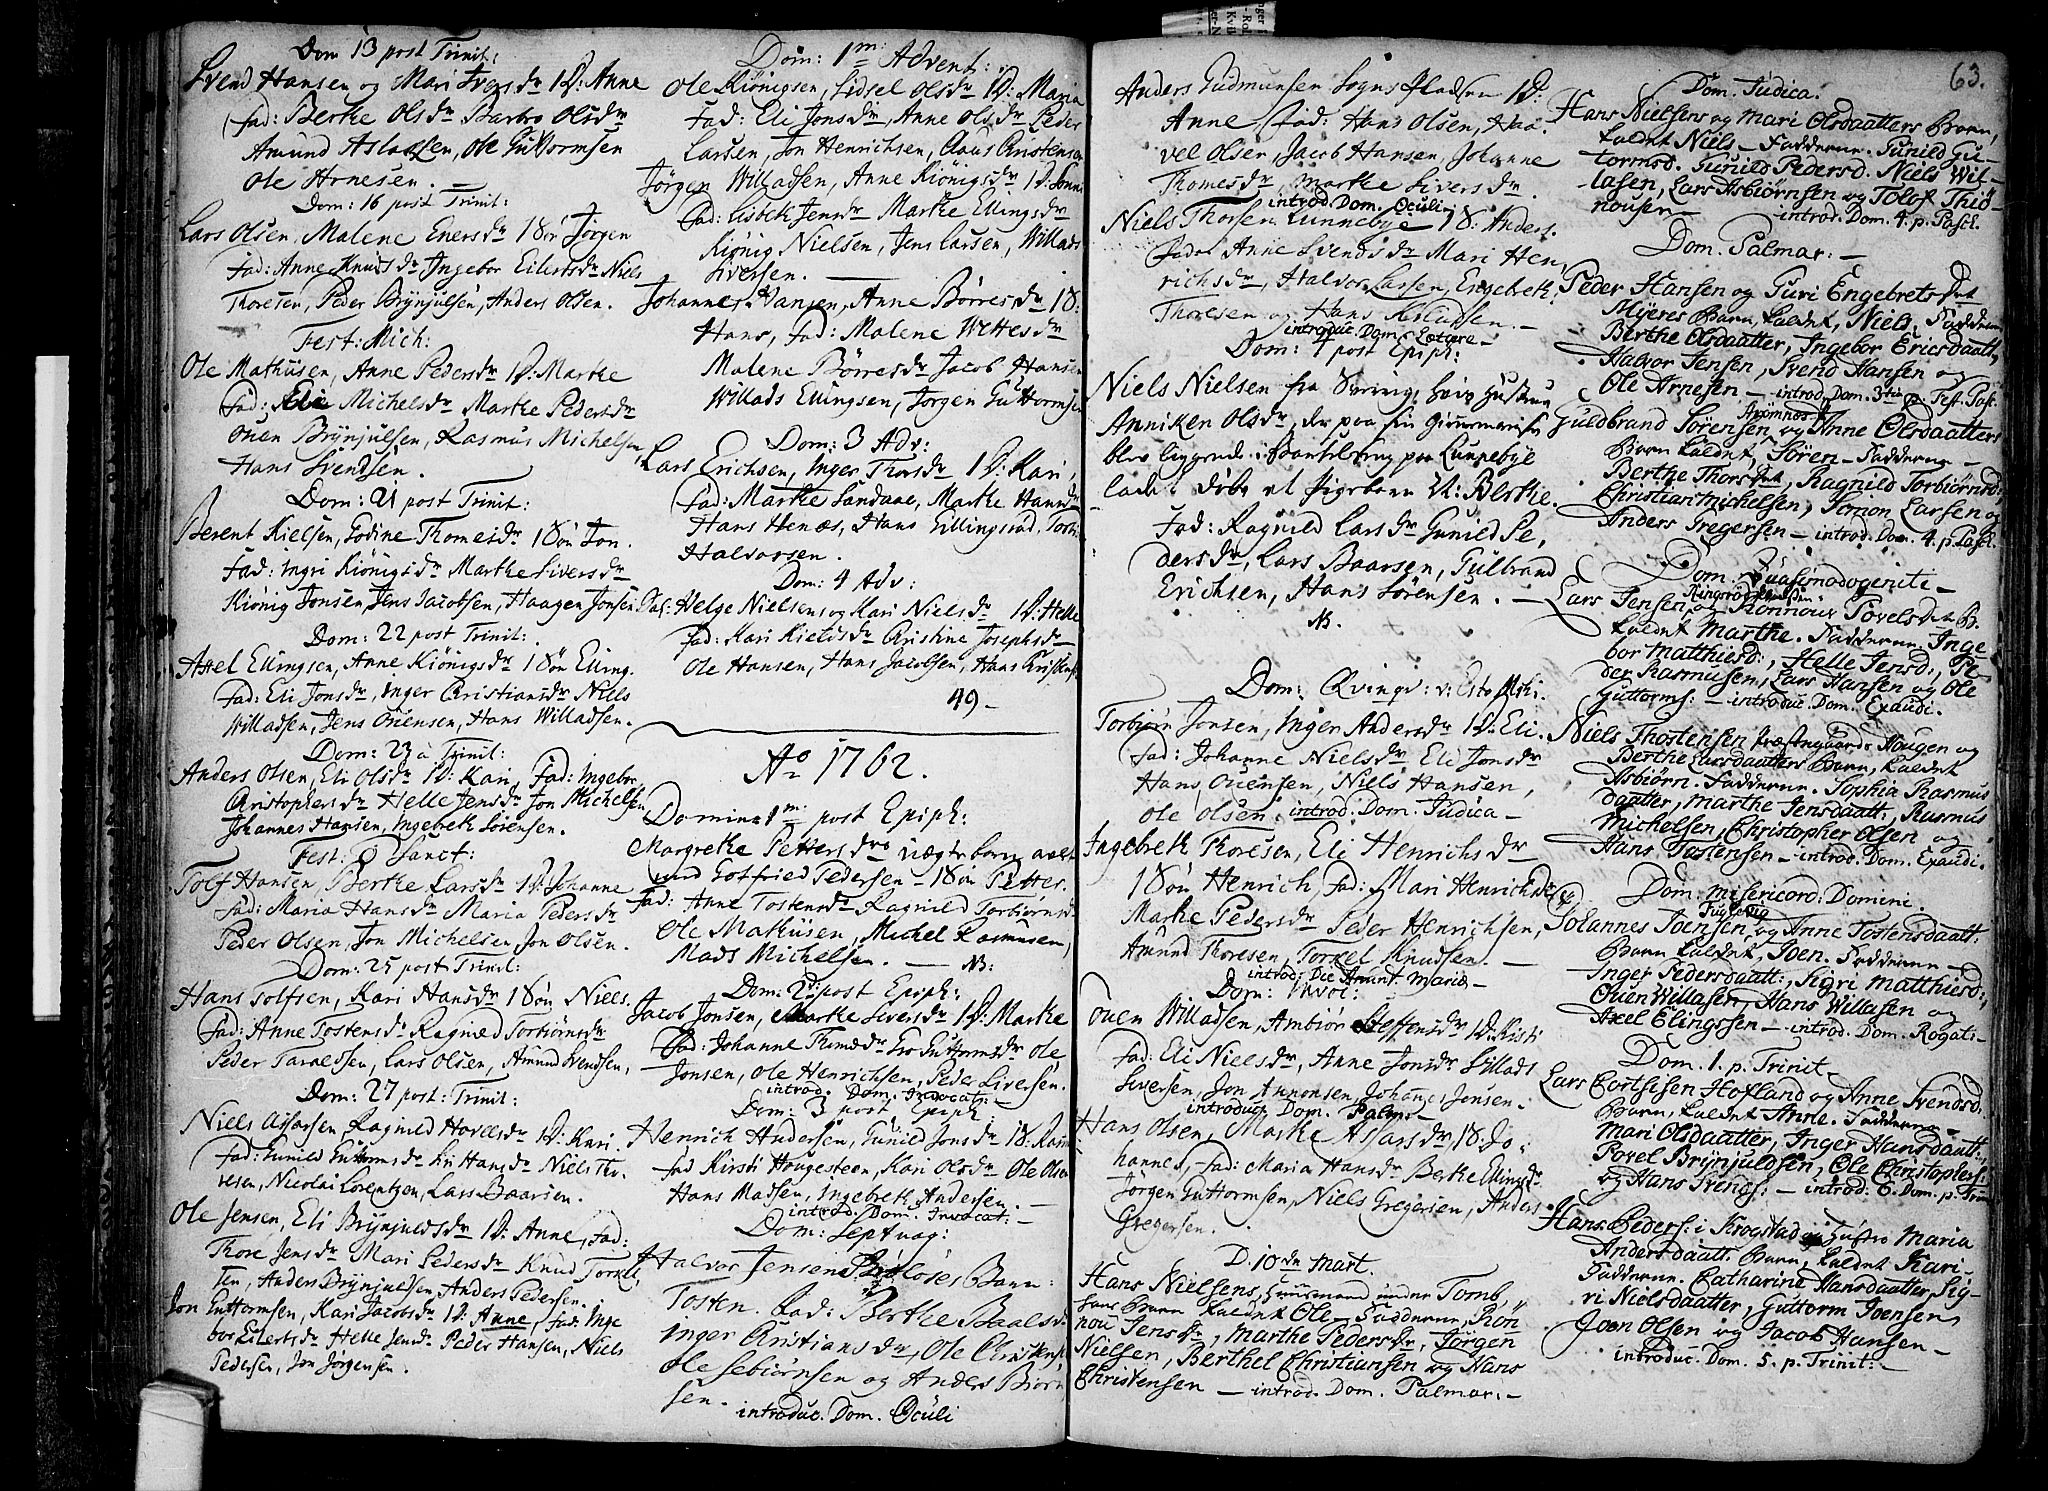 Dom 13 post Trinit:
Svend Hansen og Mari Ivers dr 1 D: Anne
Fad: Berte Ols dr Barbro Ols dr
Amund Aslaksen, Ole Guttormsen
Ole Arnesen. —
Dom: 16 post Trinit:
Lars Olsen, Malene Eners dr 1 Søn Jørgen
Fad: Anne Knuds dr Ingebor Eilerts dr Niels
Thoresen, Peder Brynjulsen, Anders Olsen.
Fest: Mich:
Ole Mathisen, Anne Peders dr 1 D: Marte
Fad: Eli Michels dr Marte Peders dr
Ouen Brynjulsen, Rasmus Michelsen
Hans Svendsen.
Dom: 21 post Trinit:
Berent Nielsen, Godine Thomes dr 1 Søn Jon.
Fad: Ingri Kiönigs dr Marte Sivers dr
Kiönig Jonsen, Jens Jacobsen, Haagen Jonsen
Dom: 22 post Trinit:
Axel Ellingsen, Anne Kiönigs dr 1 Søn Elling.
Fad: Eli Jons dr, Inger Christians dr Niels
Willadsen, Jens Ouensen, Hans Willadsen.
Dom: 23 à Trinit:
Anders Olsen, Eli Ols dr 1 D: Kari, Fad: Ingebor
Christophers dr Helle Jens dr Jon Michelsen
Johannes Hansen, Ingebret Sörensen.
Fest: O Sanct:
Tolf Hansen, Berte Lars dr 1 D: Johanne
Fad: Maria Hans dr Maria Peders dr
Peder Olsen, Jon Michelsen, Jon Olsen.
Dom: 25 post Trinit:
Hans Tolfsen, Kari Hans dr 1 Søn Niels.
Fad: Anne Tostens dr Ragnild Torbiörns dr
Peder Taraldsen, Lars Olsen, Amund Svendsen,
Dom: 27 post: Trinit:
Niels Assarsen Ragnild Hovels dr 1 D: Kari
Fad: Gunild Guttorms dr Kari Hans dr Niels
resen, Nicolai Lorentzen, Lars Baarsen.
Ole Jensen, Eli Brynjulds dr 1 D: Anne, Fad:
Thore Jens dr Mari Peders dr Knud Torkel
sen, Anders Brynjulsen, Anders Pedersen.
Jon Guttormsen, Kari Jacobs dr 1 D: Anne, Fad: Inge
bor Eilerts dr Helle Jens dr Peder Hansen, Niels
Pedersen, Jon Jörgensen.
Dom: 1m: Advent:
Ole Kiönigsen, Sidsel Ols dr 1 D: Maria
Fad: Eli Jons dr, Anne Ols dr Peder
Larsen, Jon Henrichsen, Claus Christensen
Jörgen Willadsen, Anne Kiönigs dr 1 D:
Fad: Lisbet Jens dr Marte Ellings dr
Kiönig Nielsen, Jens Larsen, Willads
Siversen. —
Johannes Hansen, Anne Börres dr 1 S:
Hans, Fad: Malene Wettes dr
Malene Börres dr Jacob Hansen
Willads Ellingsen, Jörgen Guttormsen
Dom: 3 Adv:
Lars Erichsen, Inger Thors dr 1 D: Kari,
Fad: Marte Sandaae, Marte Hanns dr
Hans Henæs, Hans Ellingsrud, Torbi
Halvorsen.
Dom: 4 Adv:
Helge Nielsens og Kari Niels dr 1 D: Helle
Fad: Kari Kields dr Christine Josephs dr
Ole Hansen, Hans Jacobsen, Hans Christens
49 —
Ao 1762.
Domin: 1m: post Epiph:
Margrete Petters dr uægte barn avlet
med Gotfried Pedersen — 1 Søn Petter.
Fad: Anne Tostens dr Ragnild Torbiörns dr
Ole Mathisen, Michel Rasmusen,
Mads Michelsen. — NB:
Dom: 2: post Epiph:
Jacob Jonsen, Marte Sivers dr 1 D: Marte
Fad: Johanne Thomæ dr Gro Guttorms dr Ole
Jonsen, Ole Henrichsen, Peder Siversen.
introd. Dom. Invocat: —
Dom: 3 post Epiph:
Henrich Andersen, Gunild Jons dr 1 S: Rasm
Fad Kirsti Hougesteen, Kari Ols dr Ole Olsen
Hans Madsen, Ingebret Andersen. —
introd. Dom. Invocat: —
Dom: Septuag:
Halvor Jensens Barn:
Tosten. Fad: Berthe Baals dr
Inger Christians dr, Ole Christens
Ole Sebiörnsen og Anders Biörn
sen. introduc. Dom. Oculi
63.
Anders Gudmunsen Sogns Pladsen 1 D:
Anne, Fad: Hans Olsen, Haa
vel Olsen, Jacob Hansen, Johanne
Thomes dr, Marte Sivers dr
introd. Dom. Oculi
Niels Thorsen Lunnebye 1 S: Anders.
Fad: Anne Svends dr Mari Hen
richs dr, Halvor Larsen, Engebret
Thoresen og Hans
introduc. Dom. Lætare —
Dom: 4 post Epiph:
Niels Nielsen fra Sverrig, hvis Hustrue
Anniken Ols dr, der paa sin
blev liggende i Barselseng paa Lunnebye
lod döbe et Pigebarn K: Berte.
Fad: Ragnild Lars dr Gunild Pe
ders dr, Lars Baarsen, Gulbrand
Erichsen, Hans Sörensen. —
NB.
Dom: Qvinqv: v: Esto Mihi.
Torbiön Jonsen, Inger Anders dr 1 D: Eli.
Fad: Johanne Niels dr Eli Jons dr
Hans Ouensen, Niels Hansen,
Ole Olsen. introd. Dom. Judica —
Ingebret Thoresen, Eli Henrichs dr
1 Søn Henrich, Fad: Mari Henrichs dr
Marte Peders dr Peder Henrichsen,
Amund Thoresen, Torkel Knudsen. —
introd: Die Anunt. Mariæ —
Dom: Invoc:
Ouen Willadsen, Ambiör Steffens dr 1 D: Kirsti
Fad: Eli Niels dr, Anne Jons dr Sillads
Siversen, Jon Annonsen, Johannes Jensen.
introduc. Dom. Palm: —
Hans Olsen, Marte Assars dr 1 S: Jo
hannes, Fad: Maria Hans dr Berte Ellings dr
Jörgen Guttormsen, Niels Gregersen, Anders
Gregersen.
D. 10de Mart.
Hans Nielsens, Huusmand under Tomb,
hans Barn kaldet Ole. Faddere, Ron
nou Jens dr, Marthe Peders dr, Jörgen
Nielsen, Berthel Christiansen og Hans
Christensen — introd. Dom. Palmar: —
Dom. Judica.
Hans Nielsens og Mari Olsdaatters Barn,
kaldet Niels — Fadderne. Gunild Gu-
tormsd. Gunild Pedersd. Niels Wil-
lasen, Lars Asbiörnsen og Tolof Thiö-
nousen — introd. Dom. 4. p. Pasch.
Dom. Palmar: —
Peder Hansen og Guri Engebretsdat
Mijeres Barn, kaldet, Niels, Fadderne
Berthe Olsdaatter, Ingebor Ericsdaatt,
Halvor Jensen, Svend Hansen og
Ole Arnesen — introd. Dom. 3tia p: Fest. Pasc.
Aromnæs
Guldbrand Sörensen og Anne Olsdaatters
Barn kaldet, Sören — Fadderne —
Berthe Thorsdat, Ragnild Torbiörnsd:
Christian Michelsen, Simon Larsen og
Anders Gregersen — introd. Dom. 4. p. Pasch.
Dom. Quasimodogeniti —
Ringsrødeien
Lars Jensen og Ronnou Povelsdat B.
kaldet Marthe. Fadderne. Inge-
bor Matthiesd:, Helle Jensd:, Pe-
der Rasmusen, Lars Hansen og Ole
Guttorms: — introduc. Dom. Exaudi.
Niels Thostensen Præstegaards Hougen og
Berthe Larsdaatters Barn, kaldet
Asbiörn. Fadderne. Sophia Rasmus
daatter, Marthe Jensdaatt:, Rasmus
Michelsen, Christopher Olsen og
Hans Tostensen — introd. Dom. Exaudi.
Dom. Misericord. Domini.
Fuglevig
Johannes Joensen, og Anne Tostensdaatt:
Barn kaldet, Joen. Fadderne —
Inger Pedersdaatt:, Sigri Matthiesd:,
Ouen Willasen, Hans Willasen og
Axel Elingssen — introd. Dom. Rogat: —
Dom. 1. p. Trinit —
Lars Corthsen Hofland og Anne Svendsd.
Barn, kaldet Anne. Fadderne —
Mari Olsdaatter, Inger Hansdaatt:,
Povel Brynjuldsen, Ole Christophers:
og Hans Svends: — introd: 6. Dom. p. Trin
Hans Peders: i Krogstad og Hustro Maria
Andersdaatt. Barn, kaldet Kari.
Fadderne. Catharina Hansdaatter, Sig-
ri Nielsdaatter, Guttorm Joensen,
Joen Olsen og Jacob Hansen —
introduc. Dom. 5. p. Trinit: —